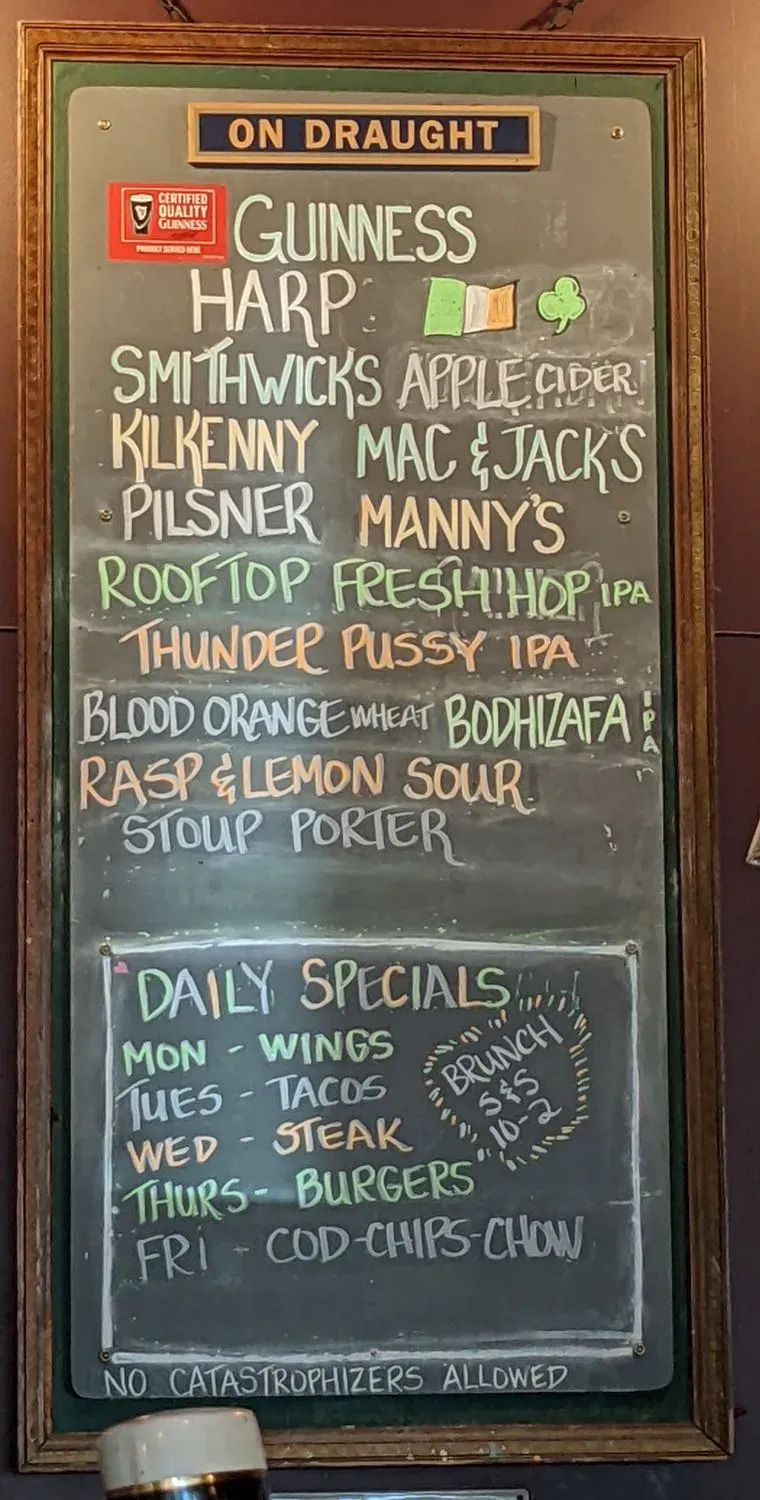 ON DRAUGHT
CERTIFIED
QUALITY
GUINNESS
PRODUCT SERVED HERE
GUINNESS
HARP
SMITHWICKS APPLE CIDER
KILKENNY MAC & JACKS
PILSNER MANNY'S
ROOFTOP FRESH HOP IPA
THUNDER PUSSY IPA
BLOOD ORANGE WHEAT BODHIZAFA IPA
RASP & LEMON SOUR
STOUP PORTER
DAILY SPECIALS
MON - WINGS
TUES - TACOS
WED - STEAK
THURS - BURGERS
FRI - COD-CHIPS-CHOW
BRUNCH
S&S
10-2
NO CATASTROPHIZERS ALLOWED